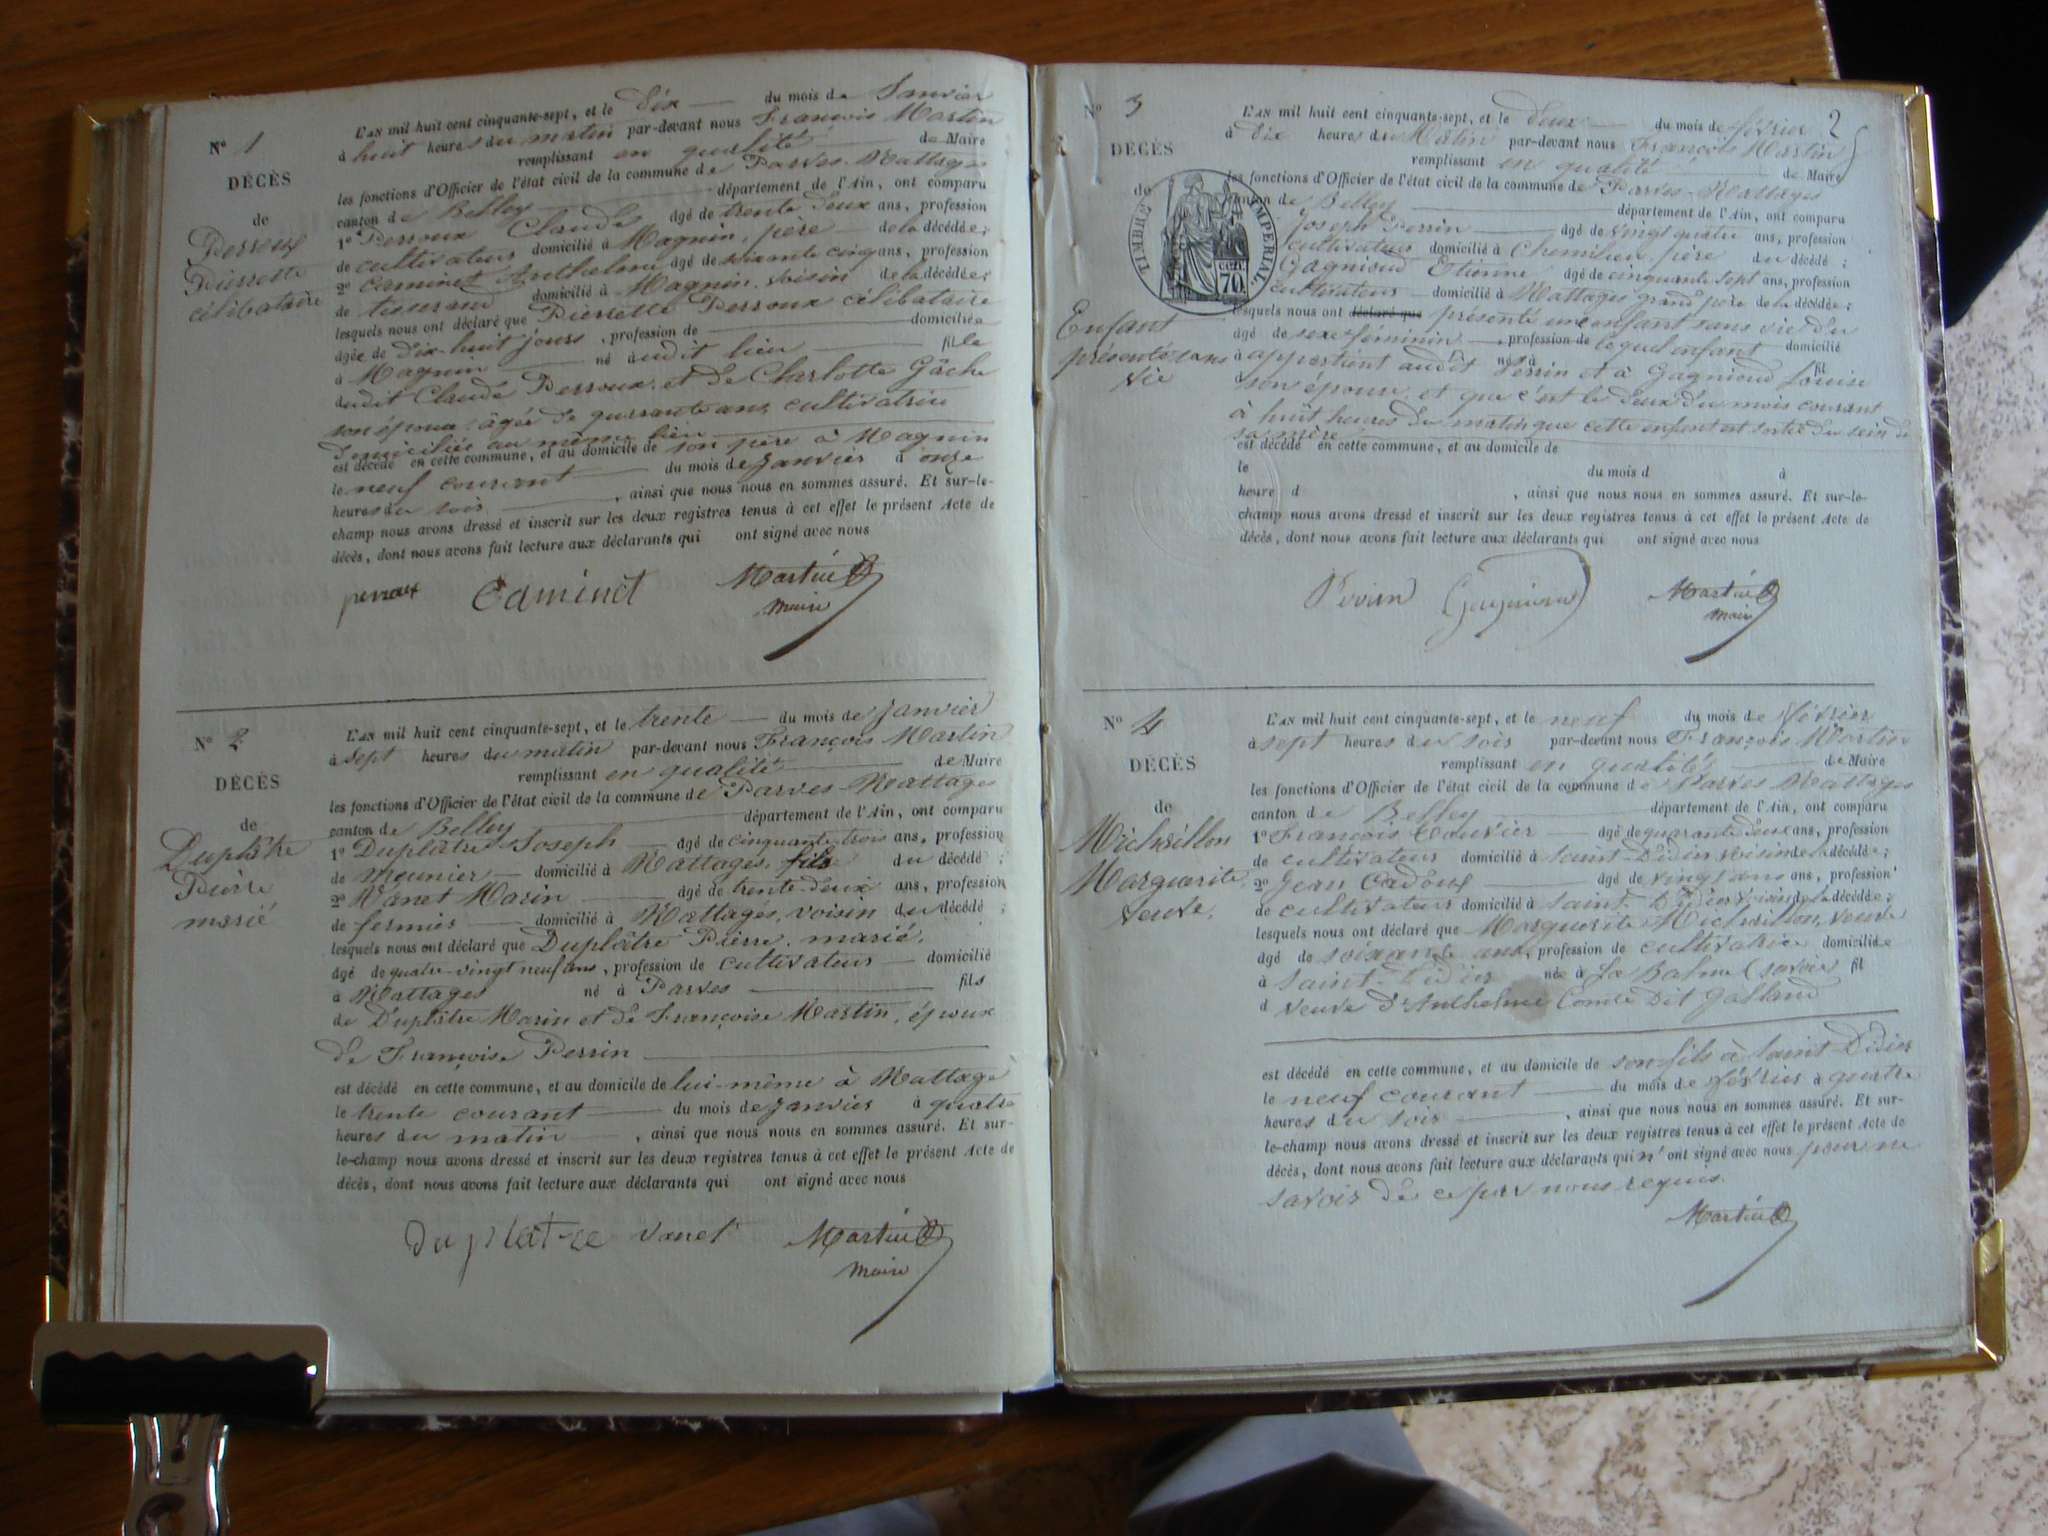 N° 1
DÉCÈS
de
Perroux
Pierrette
célibataire
L'AN mil huit cent cinquante-sept, et le dix du mois de Janvier
à huit heures du matin par-devant nous François Martin
remplissant en qualité de Maire
les fonctions d'Officier de l'état civil de la commune de Parves-Nattages
canton de Belley département de l'Ain, ont comparu
1° Perroux Claude âgé de trente deux ans, profession
de cultivateur domicilié à Magnin, père de la décédée;
2° Caminet Anthelme âgé de soixante cinq ans, profession
de tisserand domicilié à Magnin, voisin de la décédée;
lesquels nous ont déclaré que Pierrette Perroux célibataire
âgée de dix-huit jours, profession de domiciliée
à Magnin né à udit lieu fille
dudit Claude Perroux et de Charlotte Gâche
son épouse, âgée de quarante ans, cultivatrice
domiciliée au même lieu
est décédé en cette commune, et au domicile de son père à Magnin
le neuf courant du mois de Janvier à onze
heures du soir, ainsi que nous nous en sommes assuré. Et sur-le-
champ nous avons dressé et inscrit sur les deux registres tenus à cet effet le présent Acte de
décès, dont nous avons fait lecture aux déclarants qui ont signé avec nous
perroux Caminet Martin
maire
N° 2
DÉCÈS
de
Duplâtre
Pierre
marié
L'AN mil huit cent cinquante-sept, et le trente du mois de Janvier
à sept heures du matin par-devant nous François Martin
remplissant en qualité de Maire
les fonctions d'Officier de l'état civil de la commune de Parves-Nattages
canton de Belley département de l'Ain, ont comparu
1° Duplâtre Joseph âgé de cinquante trois ans, profession
de meunier domicilié à Nattages, fils du décédé;
2° Vanet Marin âgé de trente-deux ans, profession
de fermier domicilié à Nattages, voisin du décédé;
lesquels nous ont déclaré que Duplâtre Pierre, marié,
âgé de quatre-vingt neuf ans, profession de cultivateur domicilié
à Nattages né à Parves fils
de Duplâtre Marin et de Françoise Martin, époux
de Françoise Perrin
est décédé en cette commune, et au domicile de lui-même à Nattages
le trente courant du mois de Janvier à quatre
heures du matin, ainsi que nous nous en sommes assuré. Et sur-
le-champ nous avons dressé et inscrit sur les deux registres tenus à cet effet le présent Acte de
décès, dont nous avons fait lecture aux déclarants qui ont signé avec nous
duplatre vanet Martin
maire
2
N° 3
DÉCÈS
de
TIMBRE IMPERIAL
CENT. 70
Enfant
présenté sans
vie
L'AN mil huit cent cinquante-sept, et le deux du mois de février
à dix heures du Matin par-devant nous François Martin
remplissant en qualité de Maire
les fonctions d'Officier de l'état civil de la commune de Parves-Nattages
canton de Belley département de l'Ain, ont comparu
Joseph Perrin âgé de vingt quatre ans, profession
cultivateur domicilié à Chemilieu, père du décédé;
Gagnieud Etienne âgé de cinquante sept ans, profession
cultivateur domicilié à Nattages grand père de la décédée;
lesquels nous ont déclaré que présenté un enfant sans vie du
âgé de sexe féminin, profession de lequel enfant domicilié
à appartient audit né à Perrin et à Gagnieud Louise fil
son épouse, et que c'est le deux du mois courant
à huit heures du matin que cette enfant est sortie du sein de
sa mère
est décédé en cette commune, et au domicile de
le du mois d à
heure d, ainsi que nous nous en sommes assuré. Et sur-le-
champ nous avons dressé et inscrit sur les deux registres tenus à cet effet le présent Acte de
décès, dont nous avons fait lecture aux déclarants qui ont signé avec nous
Perrin Gagnieud Martin
maire
N° 4
DÉCÈS
de
Marguerite
veuve.
L'AN mil huit cent cinquante-sept, et le neuf du mois de février
à sept heures du soir par-devant nous François Martin
remplissant en qualité de Maire
les fonctions d'Officier de l'état civil de la commune de Parves Nattages
canton de Belley département de l'Ain, ont comparu
1° François âgé de quarante deux ans, profession
de cultivateur domicilié à Saint-Didier voisin de la décédée;
2° Jean Cadoux âgé de vingt ans ans, profession
de cultivateur domicilié à Saint-Didier voisin de la décédée;
lesquels nous ont déclaré que Marguerite veuve
âgé de soixante ans, profession de cultivatrice domiciliée
à Saint-Didier née à La Balme (Savoie) fil
d veuve d'Anthelme Comte dit Galland
est décédé en cette commune, et au domicile de son fils à Saint-Didier
le neuf courant du mois de février à quatre
heures du soir, ainsi que nous nous en sommes assuré. Et sur-
le-champ nous avons dressé et inscrit sur les deux registres tenus à cet effet le présent Acte de
décès, dont nous avons fait lecture aux déclarants qui n'ont signé avec nous pour ne
savoir de ce par nous requis.
Martin